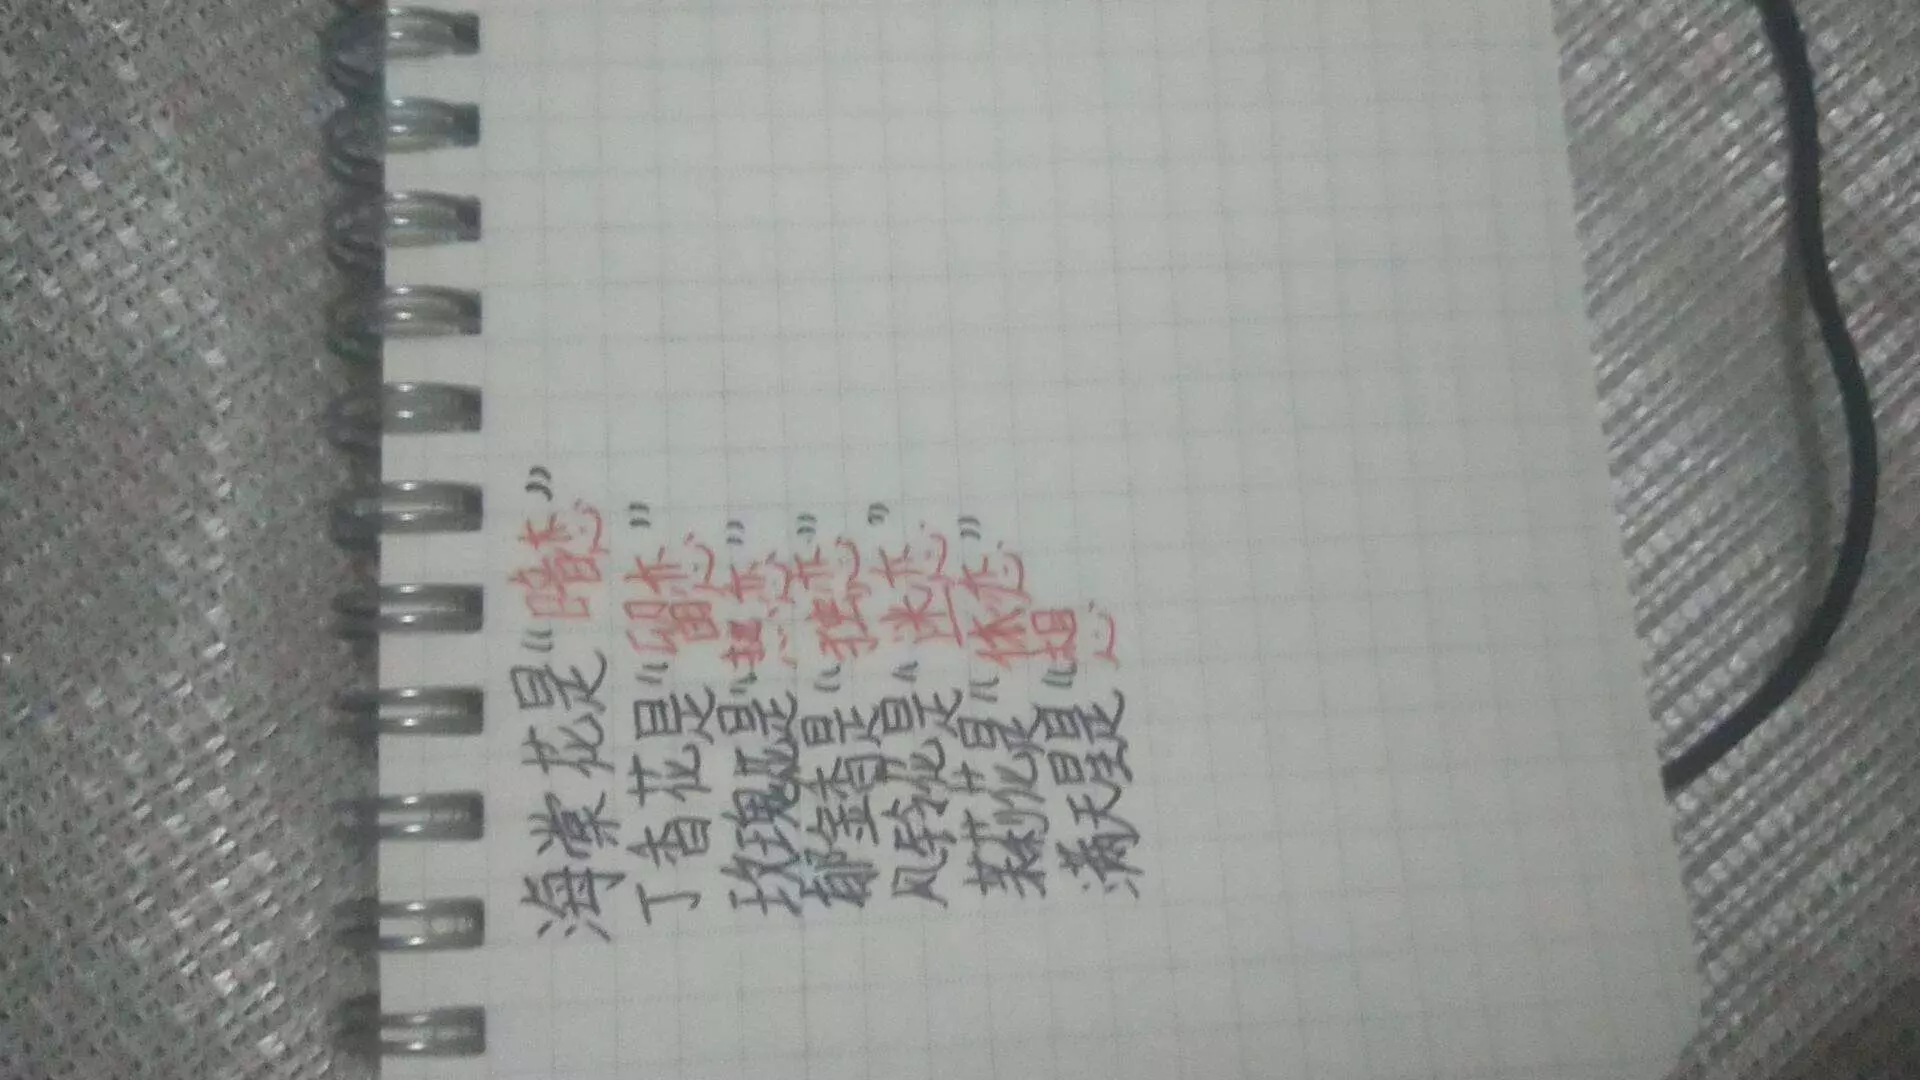 海棠花是“暗恋”
丁香花是“初恋”
玫瑰花是“热恋”
郁金香是“独恋”
风铃花是“迷恋”
茉莉花是“依恋”
满天星是“想